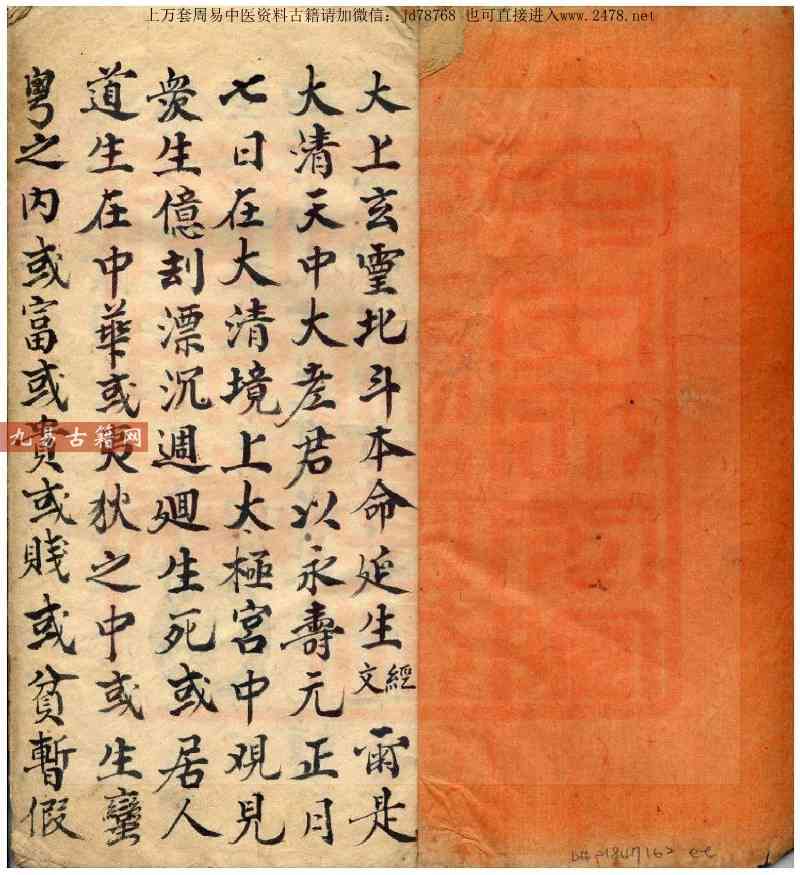 上万套周易中医资料古籍请加微信：jd78768 也可直接进入www.2478.net
大上玄靈北斗本命延生經文 爾是
大清天中大老君以永壽元正月
七日在大清境上大極宮中观見
衆生億刼漂沉週廻生死或居人
道生在中華或夷狄之中或生蠻
粤之内或富或貴或賤或貧暫假
九易古籍网